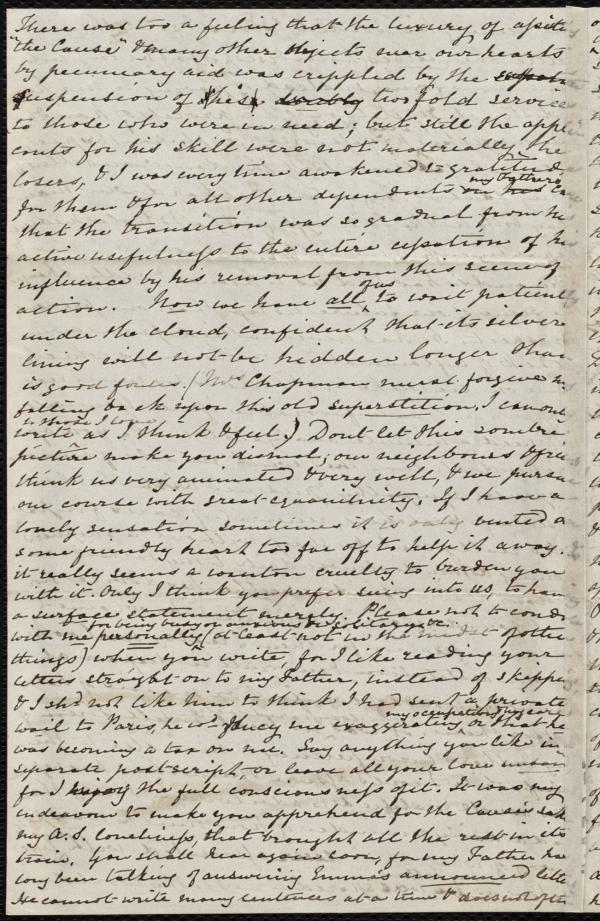 There was too a feeling that the luxury of
"the Cause" & many other objects near our hearts
by pecuniary aid was crippled by the
suspension of this twofold service
to those who were in need; but still the
for his skill were not materially the
losers, & I was every time awakened to gratitude
my Father's
for them & for all other dependents on his
that the transition was so gradual from
active usefulness to the entire cessation of
influence by his removal from this scene of
action. Now we have all of us to wait
under the cloud, confident that its silver
lining will not be hidden longer than
is good for us. (Mrs Chapman must forgive
falling back upon this old superstition, I cannot
to those I love
write as I think & feel.) Dont let this sombre
picture make you dismal; our neighbours &
think us very animated & very well, & we
our course with great equanimity. If I have a
lonely sensation sometimes it is only vented
some friendly heart too far off to help it away.
it really seems a wanton cruelty to burden you
with it. Only I think you prefer seeing into us, to
a surface statement merely. Please not to
for being busy or anxious or solitary &c.
with me personally (at least not in the midst of other
things) when you write, for I like reading your
letters straight on to my Father, instead of
& I shd not like him to think I had sent a private
my occupation & my care
wail to Paris, he wd fancy me exaggerating, or that he
was becoming a tax on me. Say anything you like in
separate post-script, or leave all your love
for I enjoy the full consciousness of it. It was my
endeavour to make you apprehend for the Cause's sake
my A.S. loneliness, that brought all the rest in its
train. You shall hear again soon, for my Father
long been talking of answering Emma's announced
He cannot write many sentences at a time & does not